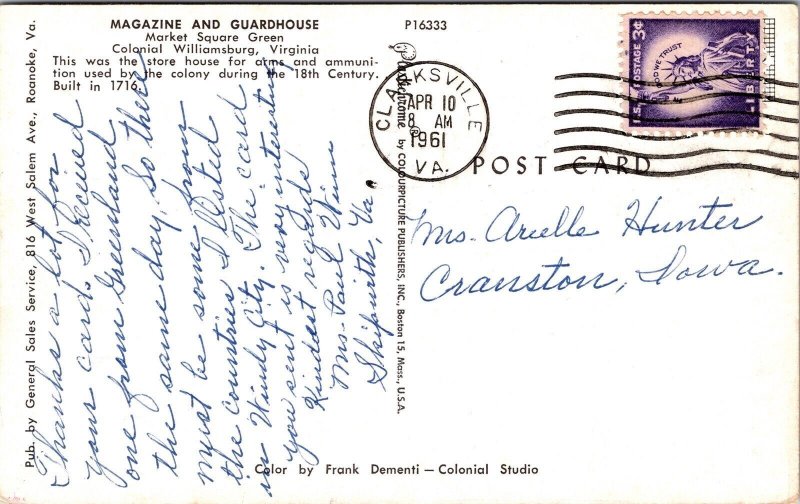 MAGAZINE AND GUARDHOUSE
Market Square Green
Colonial Williamsburg, Virginia
This was the store house for arms and ammuni-
tion used by the colony during the 18th Century.
Built in 1716.
P16333
Pub. by General Sales Service, 816 West Salem Ave., Roanoke, Va.
Thanks a lot for
your card. I received
one from Greenland
the same day, So there
must be some from
the countries I listed
in Windy City. The card
you sent is very interesting
Kindest regards
Mrs. Paul Winn
Skipwith, Va.
Color by Frank Dementi — Colonial Studio
Plastichrome ® by COLOURPICTURE PUBLISHERS, INC., Boston 15, Mass., U.S.A.
CLARKSVILLE
APR 10
8 AM
1961
VA.
U.S. POSTAGE 3¢
IN GOD WE TRUST
LIBERTY
POST CARD
Ms. Arielle Hunter
Cranston, Iowa.